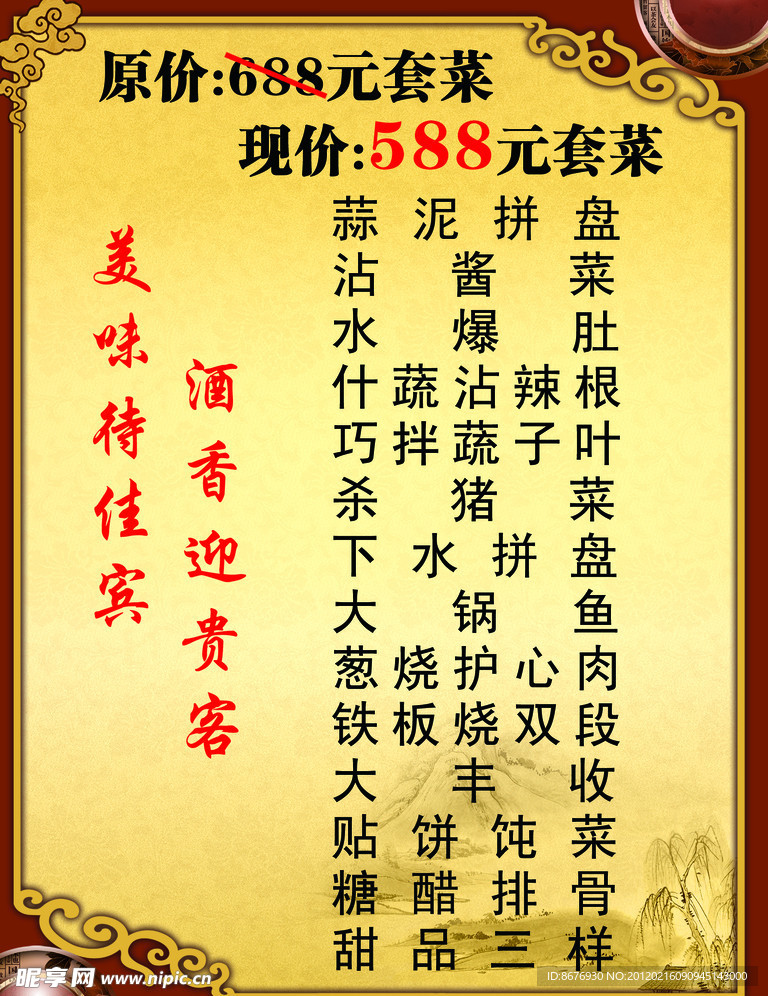 原价:688元套菜
现价:588元套菜
美味待佳宾
酒香迎贵客
蒜泥拼盘
沾酱菜
水爆肚
什蔬沾辣根
巧拌蔬子叶
杀猪菜
下水拼盘
大锅鱼
葱烧护心肉
铁板烧双段
大丰收
贴饼饨菜
糖醋排骨
甜品三样
昵享网 www.nipic.cn
ID:8676930 NO:20120216090945143000